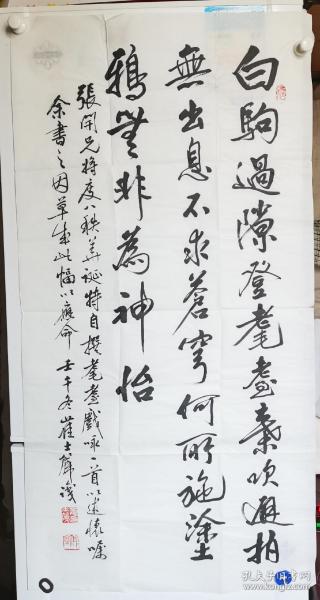 白駒過隙登耄耋棄吹避拍
無出息不求蒼穹何所施塗
鴉無非為神怡
張開兄將度八秩華誕特自撰耄耋戲詠一首以述懷囑
余書之因草成此幅以應命 壬午冬崔士
孔夫子旧书网